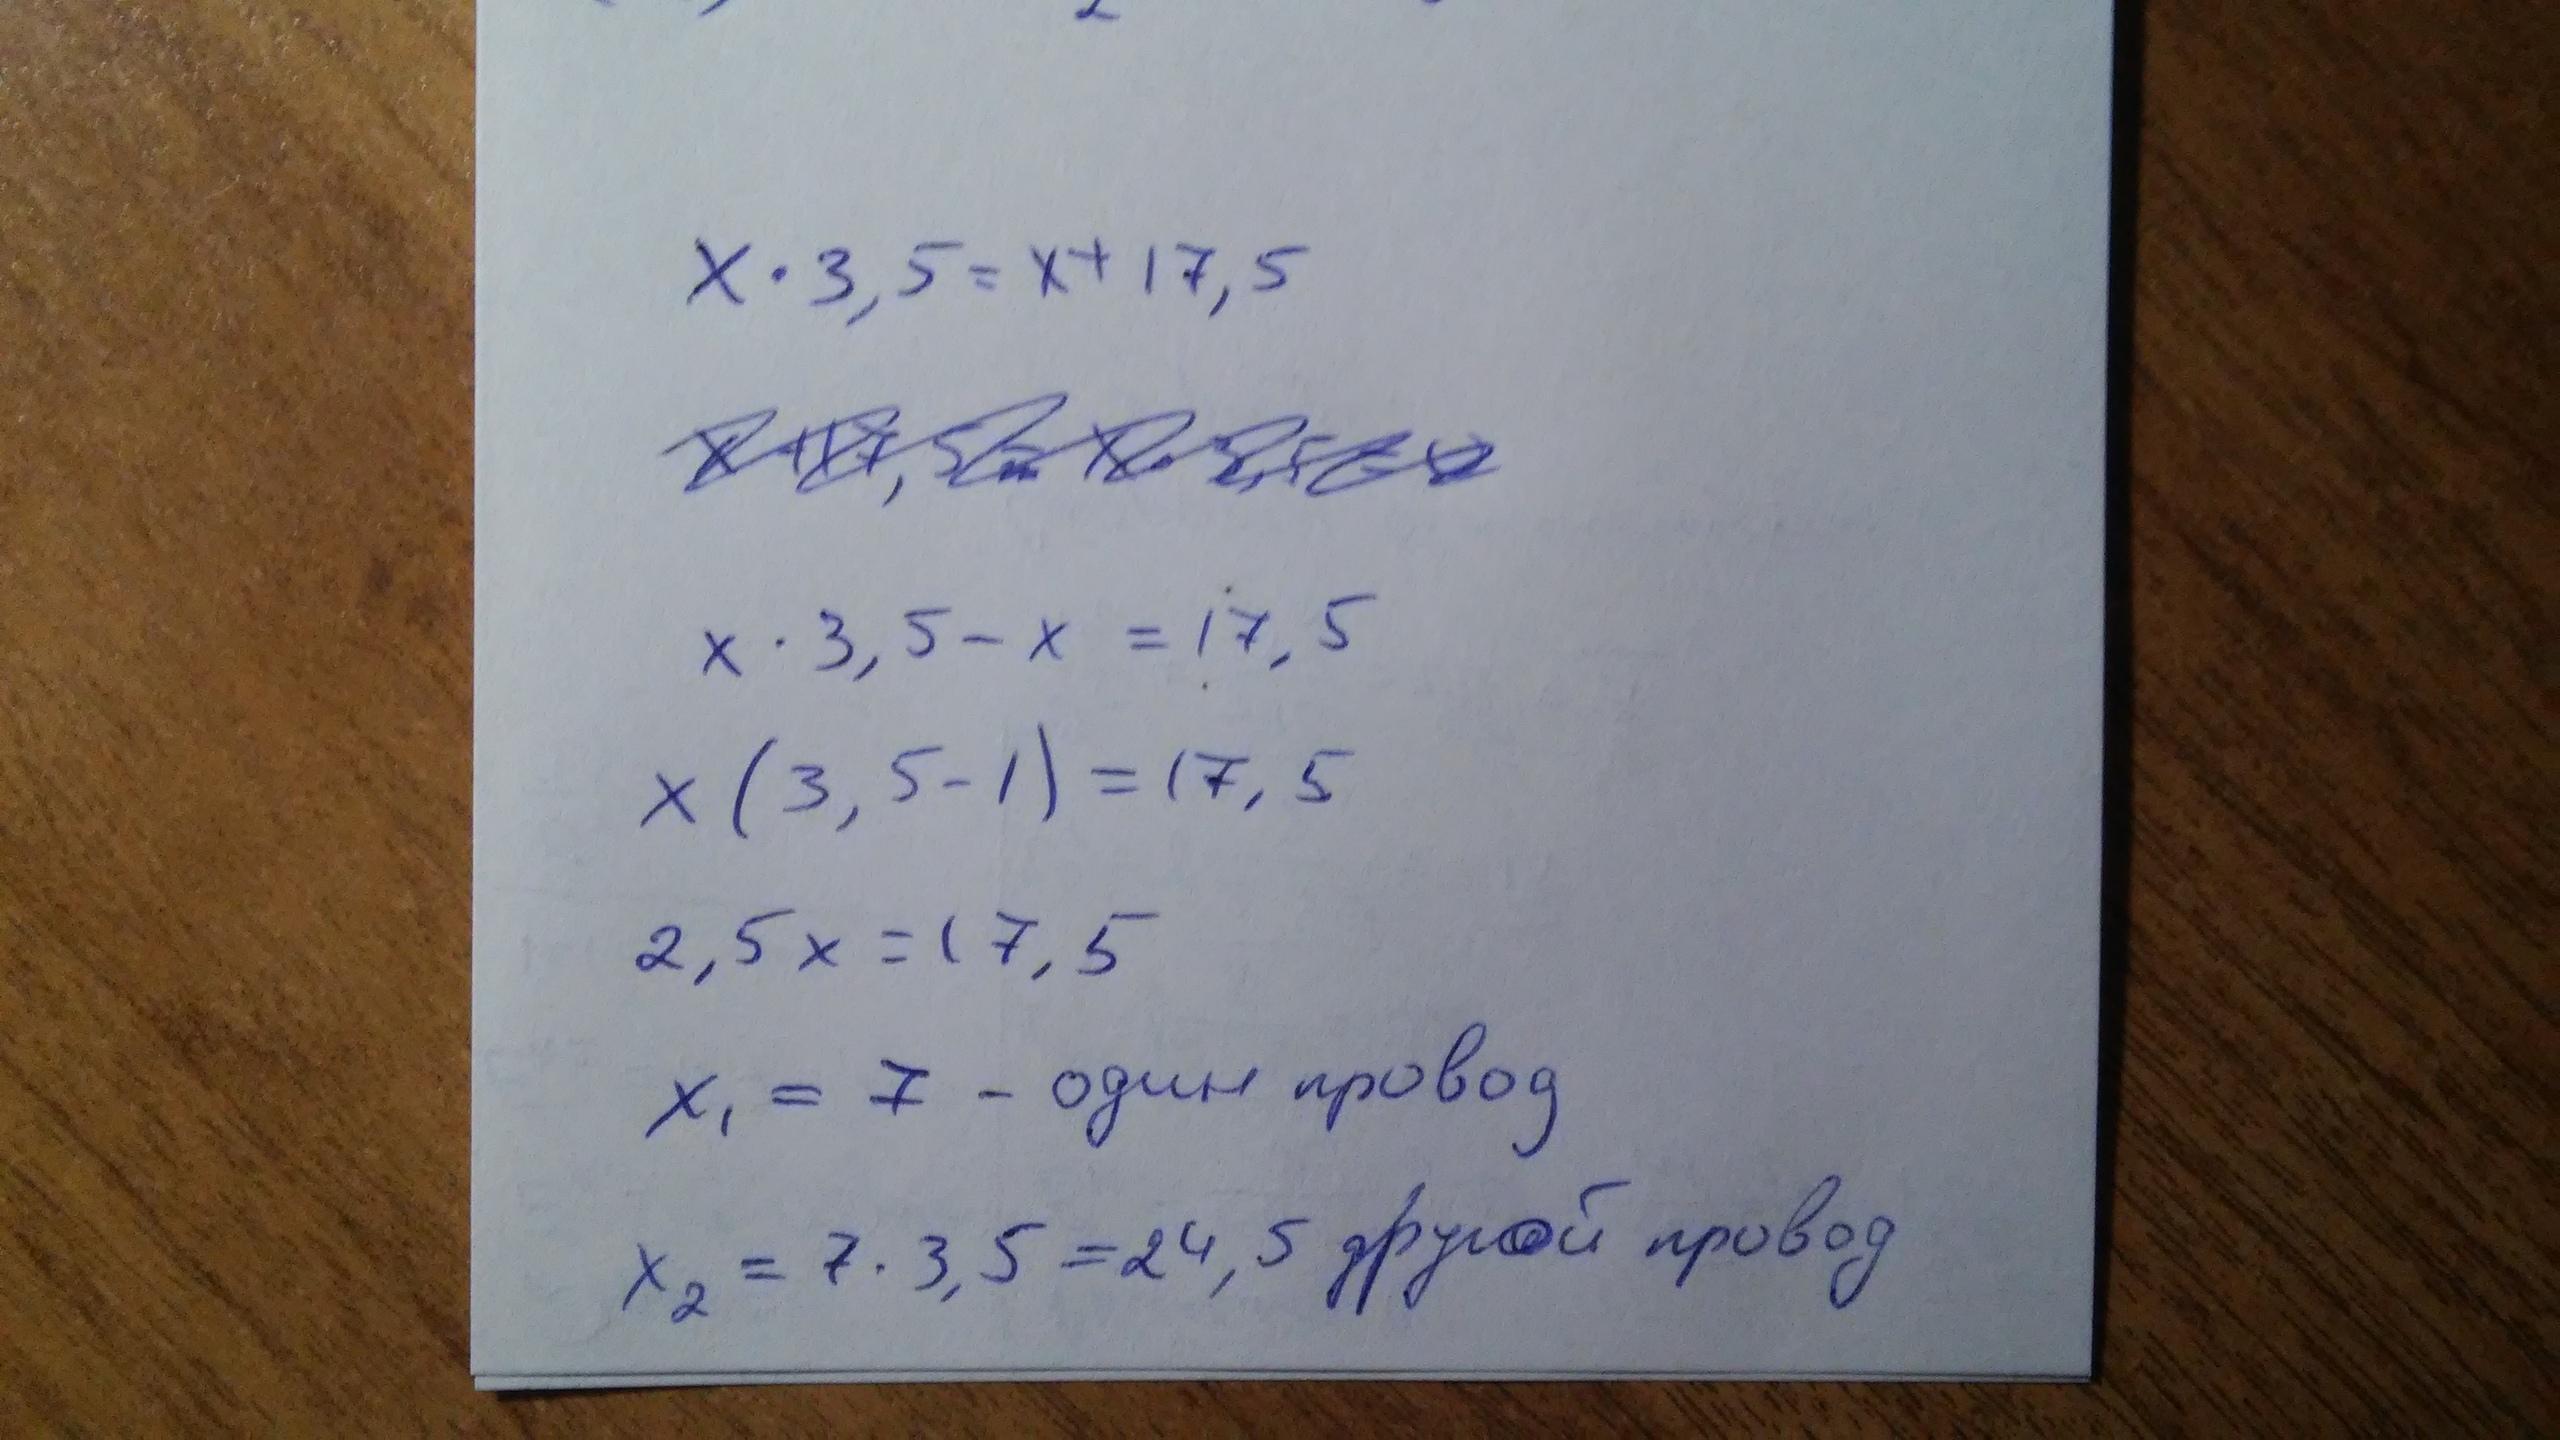 x · 3,5 = x + 17,5
x · 3,5 - x = 17,5
x (3,5 - 1) = 17,5
2,5x = 17,5
x₁ = 7 - один провод
x₂ = 7 · 3,5 = 24,5 другой провод